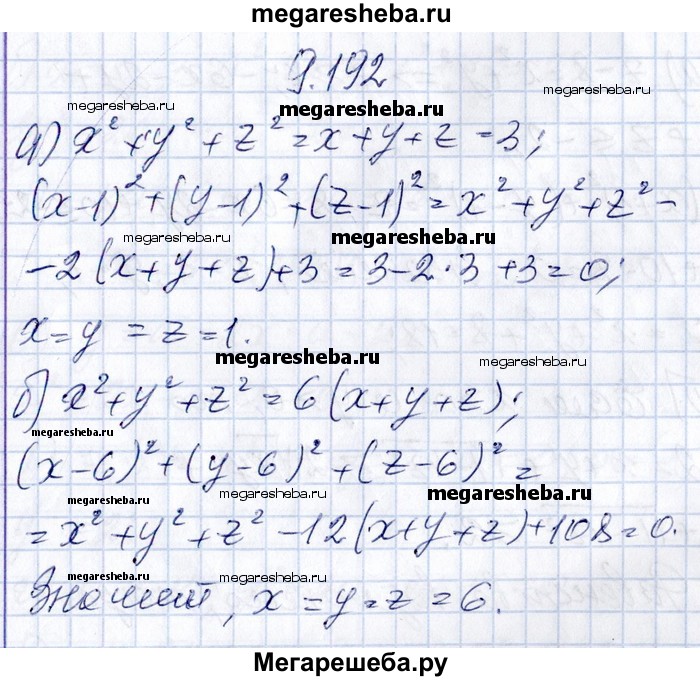 megaresheba.ru
9.192
megaresheba.ru megaresheba.ru megaresheba.ru
а) x² + y² + z² = x + y + z = 3;
(x-1)² + (y-1)² + (z-1)² = x² + y² + z² -
megaresheba.ru megaresheba.ru
- 2(x + y + z) + 3 = 3 - 2 · 3 + 3 = 0;
x = y = z = 1.
megaresheba.ru megaresheba.ru
б) x² + y² + z² = 6(x + y + z);
megaresheba.ru
(x-6)² + (y-6)² + (z-6)² =
megaresheba.ru megaresheba.ru megaresheba.ru
= x² + y² + z² - 12(x + y + z) + 108 = 0.
megaresheba.ru megaresheba.ru
, x = y = z = 6.
Мегарешеба.ру